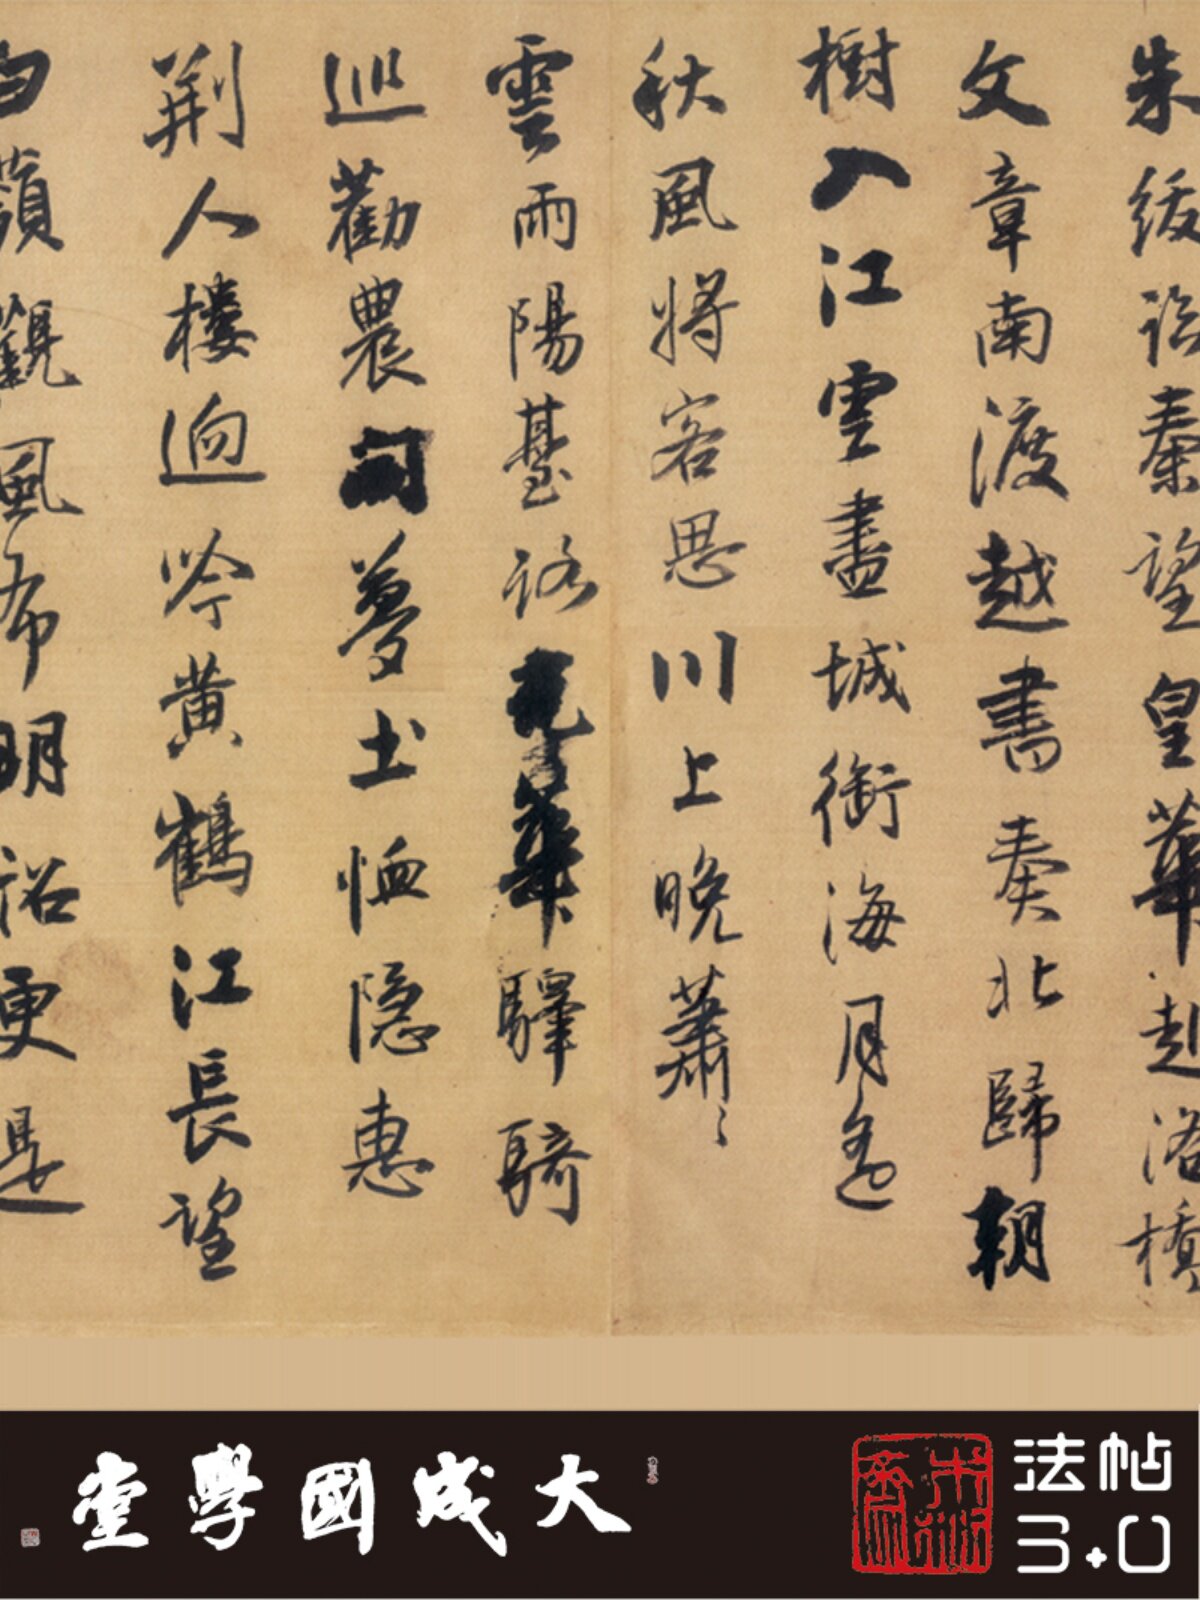 朱紱詣秦望皇華赴洛橋
文章南渡越書奏北歸朝
樹入江雲盡城銜海月遙
秋風将客思川上晚蕭〻
雲雨陽臺路光華驛騎
巡勸農開夢土恤隐惠
荆人樓迥吟黄鶴江長望
白蘋觀風布明詔更是
大成國學堂
法帖
3.0